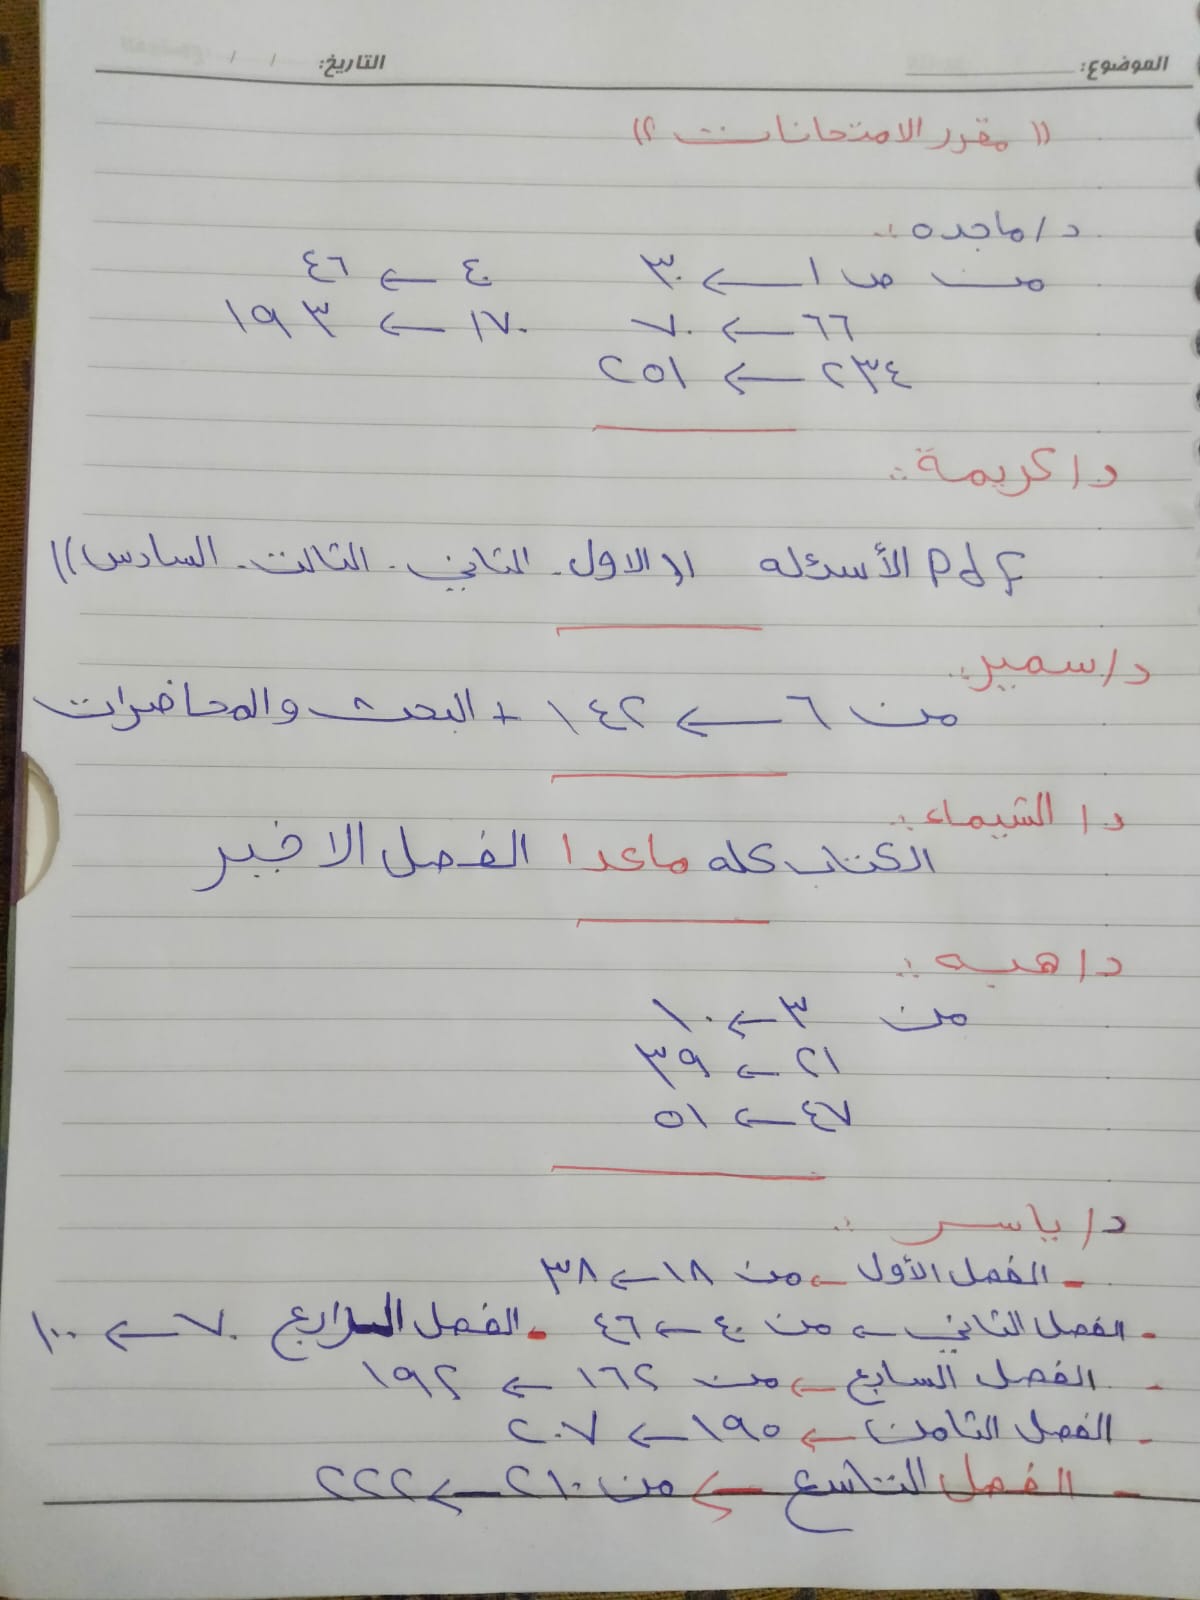 الموضوع: التاريخ: / /
(( مقرر الامتحانات ))
د/ماجده :.
من ص ١ ← ٣٠ ٤٠ ← ٤٦
٦٦ ← ٧٠ ١٧٠ ← ١٩٣
٢٣٤ ← ٢٥١
د/كريمة :.
pdf الأسئله ((الاول - الثاني - الثالث - السادس))
د/سمير :.
من ٦ ← ١٤٢ + البحث والمحاضرات
د/ الشيماء :.
الكتاب كله ماعدا الفصل الاخير
د/هبه :.
من ٣ ← ١٠
٢١ ← ٣٩
٤٧ ← ٥١
د/ياسر :.
- الفصل الأول ← من ١٨ ← ٣٨
- الفصل الثاني ← من ٤٠ ← ٤٦ - الفصل الرابع ٧٠ ← ١٠٠
- الفصل السابع ← من ١٦٢ ← ١٩٢
- الفصل الثامن ← ١٩٥ ← ٢٠٧
- الفصل التاسع ← من ٢١٠ ← ٢٢٢